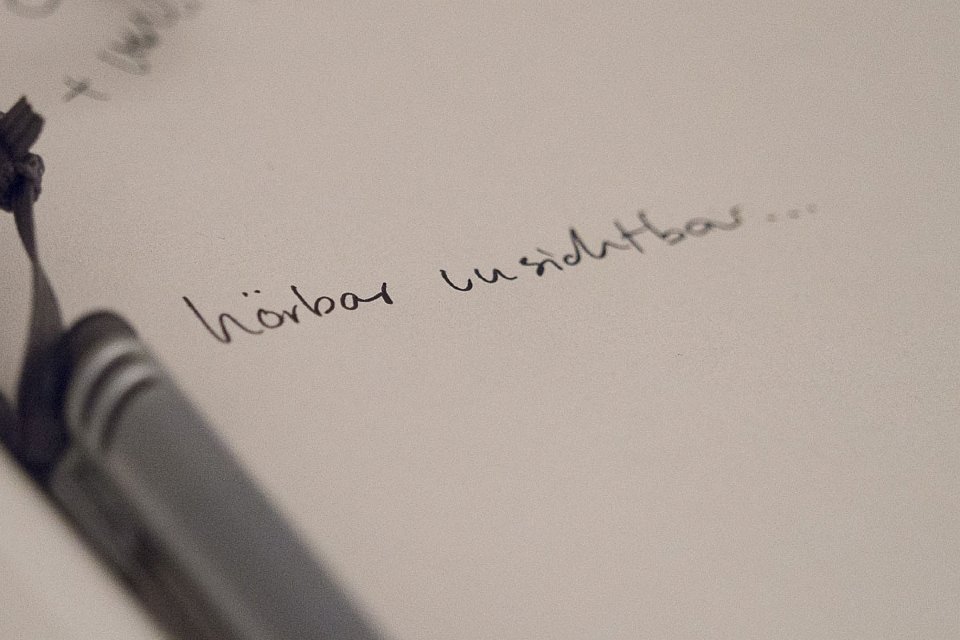 hörbar unsichtbar...